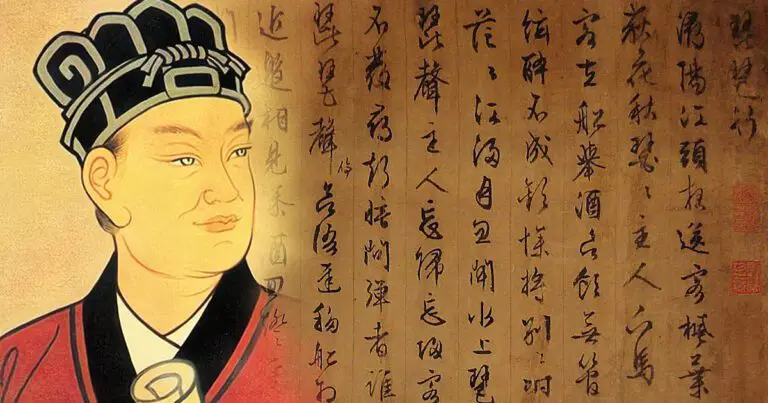 琵琶行
潯陽江頭夜送客楓葉
荻花秋瑟々主人下馬
客在船舉酒欲飲無管
絃醉不成歡慘將別々時
茫々江浸月忽聞水上琵
琶聲主人忘歸忘歸客
不發尋聲暗問彈者誰
琵琶聲停欲語遲移船相
近邀相見添酒回燈